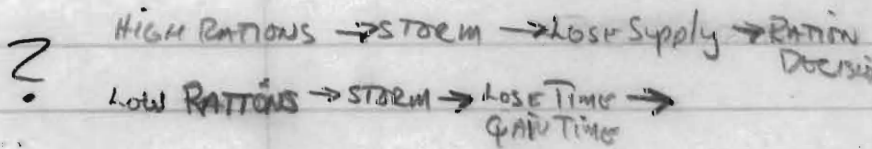 ? HIGH RATIONS → STORM → LOSE Supply → RATION
DECISI
LOW RATIONS → STORM → LOSE TIME →
GAIN TIME